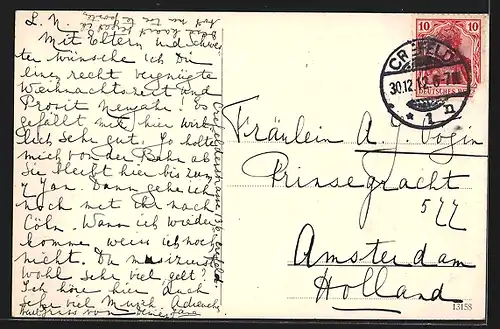 L. N.
Mit Eltern und Schwes-
ter wünsche ich Du
einen recht vergnügte
Weihnachtszeit und
Prosit Neujahr! Es
gefällt mit hier wirk-
lich sehr gut. Jo holte
mich von der Bahn ab
Sie bleibt hier bis zum
7 Jan. Dann gehe ich
noch mit ihr nach
Cöln. Wann ich wieder
komme weiss ich noch
nicht. Du musizierst
wohl sehr viel, gelt?
Ich höre hier auch
sehr viel Musik. Adieu
gruss von
10
10
DEUTSCHES REICH
CREFELD
30.12.12.6-7N
* 1 n
Fräulein A. J.
Prinsegracht
577
Amsterdam
Holland
13158